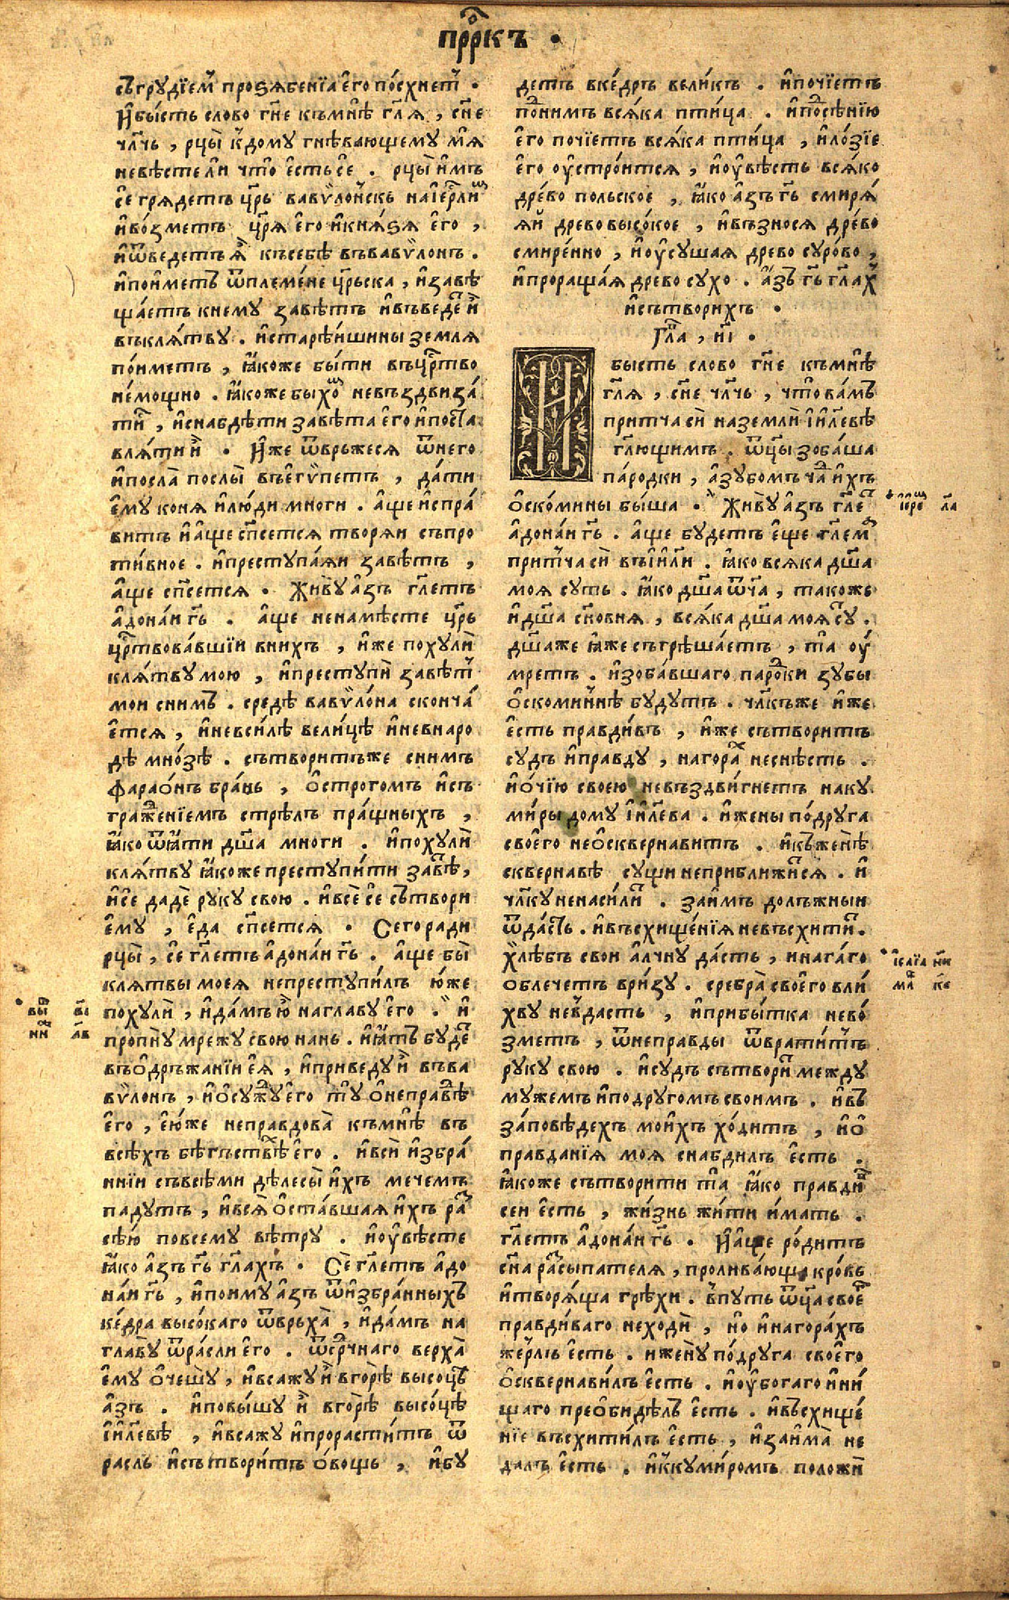 прⷪ҇ркъ ·
съгрꙋдїем̾ проѕѧбенїа є҆го посхнет̾ .
И҆бысть слово гн҃е къмнѣ гл҃ѧ , сн҃е
чл҃чь , рцы̀ к̾домꙋ гнѣвающемꙋ мѧ
невѣстели что̀ є҆сть се . рцы̀ и҆мъ
се грѧдетъ цр҃ь вавѷлонскъ наі҆ерⷭ҇лиⷨ
и҆возметъ цр҃ѧ є҆го и҆кнѧѕѧ є҆го ,
и҆ѿведетъ ѧ҆̀ къ себѣ въвавѷлонъ .
и҆поиметъ ѿплемене цр҃ьска , и҆завѣ
щаетъ кнемꙋ завѣтъ и҆въведеⷮ и҆̀
въклѧтвꙋ . и҆старѣишины землѧ
поиметъ , ꙗ҆коже быти въцрⷭ҇тво
немощно . ꙗ҆коже быхоⷨ невъздвиза
тиⷭ , и҆снабдѣти завѣта є҆го и҆поста
влѧти и҆̀ . И҆же ѿвръжесѧ ѿнего
и҆посла̀ послы̀ въегѷпетъ , дати
є҆мꙋ конѧ и҆люди многи . а҆ще и҆спра
витъ и҆аще сп҃сетсѧ творѧи съпро
тивное . и҆преступаѧи завѣтъ ,
а҆ще сп҃сетсѧ . Живꙋ а҆зъ гл҃етъ
а҆донаи гь҃ . а҆ще ненамѣсте цр҃ь
црⷭ҇твовавшїи внихъ , и҆же похꙋлѝ
клѧтвꙋ мою , и҆преступѝ завѣт̾
мои сним̾ . средѣ вавѷлона сконча
етсѧ , и҆невсилѣ велицѣ и҆невнаро
дѣ мнозѣ . сътворитъже снимъ
фараонъ брань , о҆строгомъ и҆съ
тражⷣенїемъ стрѣлъ пращныхъ ,
ꙗ҆ко ѿꙗти дш҃а многи . и҆похꙋлѝ
клѧтвꙋ ꙗ҆коже преступити завⷮѣ ,
и҆се дадѐ рꙋкꙋ свою . и҆всѐ се створи
є҆мꙋ , є҆да сп҃сетсѧ . Сегоради
рцы̀ , се гл҃етъ а҆донаи гь҃ . а҆ще бы̀
клѧтвы моеѧ непреступилъ ю҆же
похꙋлѝ , и҆дамъ ю҆̀ наглавꙋ є҆го . и҆
пропнꙋ мрежꙋ свою нань . и҆ꙗтъ бꙋдеⷮ
въодръжанїи еѧ̀ , и҆приведꙋ и҆̀ въва
вѷлонъ , и҆осꙋжⷣꙋ є҆го тꙋ о҆неправⷣѣ
є҆го , є҆юже неправдова̀ къмнѣ въ
всѣхъ бѣгьствⷯѣ є҆го . и҆вси и҆збра
ннїи съвсѣми дѣлесы̀ и҆хъ мечемъ
падꙋтъ , и҆всѧ̀ о҆ставшаѧ и҆хъ раⷥ
сѣю повсемꙋ вѣтрꙋ . и҆оувѣсте
ꙗ҆ко а҆зъ гь҃ гл҃ахъ . Се гл҃етъ а҆до
наи гь҃ , и҆поимꙋ а҆зъ ѿизбранныхъ
кедра высокаго ѿвръха̀ , и҆дамъ на
главꙋ ѿрасли є҆го . ѿсрⷣечнаго верха̀
є҆мꙋ о҆чешꙋ , и҆всажꙋ и҆̀ вгорѣ высоц̾ѣ
а҆зъ . и҆повышꙋ и҆̀ вгорѣ высоцѣ
і҆и҃левѣ , и҆всажꙋ и҆прораститъ ѿ
расль и҆сътворитъ о҆вощь , и҆бꙋ
выⷲ҇ в҃і
ни҃ а҃в
детъ вкедръ великъ . и҆почїетъ
поⷣнимъ всѧка птица . и҆поⷣсѣнїю
є҆го почїетъ всѧка птица , и҆лозїе
є҆го оу҆строитсѧ , и҆оувѣсть всѧко
древо польское , ꙗ҆ко а҆зъ гь҃ смирѧ
ѧи древо высокое , и҆възносѧ древо
смиренно , и҆оусꙋшаѧ древо сꙋрово ,
и҆проращаѧ древо сꙋхо . а҆зъ гь҃ гл҃ахъ
и҆сътворихъ .
Гл҃а , и҃і .
И бысть слово гн҃е къмнѣ
гл҃ѧ , сн҃е чл҃чь , что̀ вамъ
притча сѝ наземлѝ і҆и҃левѣ
гл҃ющимъ . ѿц҃ы зобаша
пародки , а҆зꙋбомъ чаⷣ и҆хъ
о҆скомины быша . Живꙋ а҆зъ гл҃еⷮ
а҆донаи гь҃ . а҆ще бꙋдетъ є҆ще гл҃емⷶ
притча сѝ въі҆и҃ли . ꙗ҆ко всѧка дш҃а
моѧ сꙋть . ꙗ҆ко дш҃а ѿч҃а , такоже
и҆дш҃а сн҃овнѧ , всѧка дш҃а моѧ сꙋ .
дш҃аже ꙗ҆же съгрѣшаетъ , та оу
мретъ . и҆зобавшаго пароⷣки зꙋбы
о҆скоминнѣ бꙋдꙋтъ . чл҃къже и҆же
є҆сть правдивъ , и҆же сътворитъ
сꙋдъ и҆правдꙋ , нагораⷯ неснѣсть .
и҆очїю своею невъздвигнетъ накꙋ
миры домꙋ і҆и҃лева . и҆жены подрꙋга
своего неосквернавитъ . и҆къженѣ
сквернавѣ сꙋщи неприближиⷮсѧ . и҆
чл҃кꙋ ненасилиⷮ . заимъ должныи
ѿдасть . и҆въсхищенїѧ невъсхитиⷮ .
хлѣбъ свои алчнꙋ дасть , и҆нагаго
о҆блечетъ вризꙋ . сребра своего вли
хвꙋ невдасть , и҆прибытка нево
зметъ , ѿнеправды ѿвратитъ
рꙋкꙋ свою . и҆сꙋдъ сътвориⷮ междꙋ
мꙋжемъ и҆подрꙋгомъ своимъ . и҆въ
заповѣдехъ моихъ ходитъ , и҆о
правданїѧ моѧ снабдилъ є҆сть .
ꙗ҆коже сътворити та̀ ꙗ҆ко правдиⷡ
сеи є҆сть , жизнь жити и҆мать .
гл҃етъ а҆донаи гь҃ . И҆аще родитъ
сн҃а расыпателѧ , проливающа кровь
и҆творѧща грѣхи . впꙋть ѿц҃а своеⷢ
правдиваго неходѝ , но и҆нагорахъ
жерлъ є҆сть . и҆женꙋ подрꙋга своего
о҆сквернавилъ є҆сть . и҆оубогаго и҆ни
щаго преобидѣлъ є҆сть . и҆въсхище
нїе въсхитилъ є҆сть , и҆заима̀ не
далъ є҆сть . и҆к̾кꙋмиромъ положѝ
і҆ереⷨ л҃а
і҆саїа н҃и
маⷴ к҃е